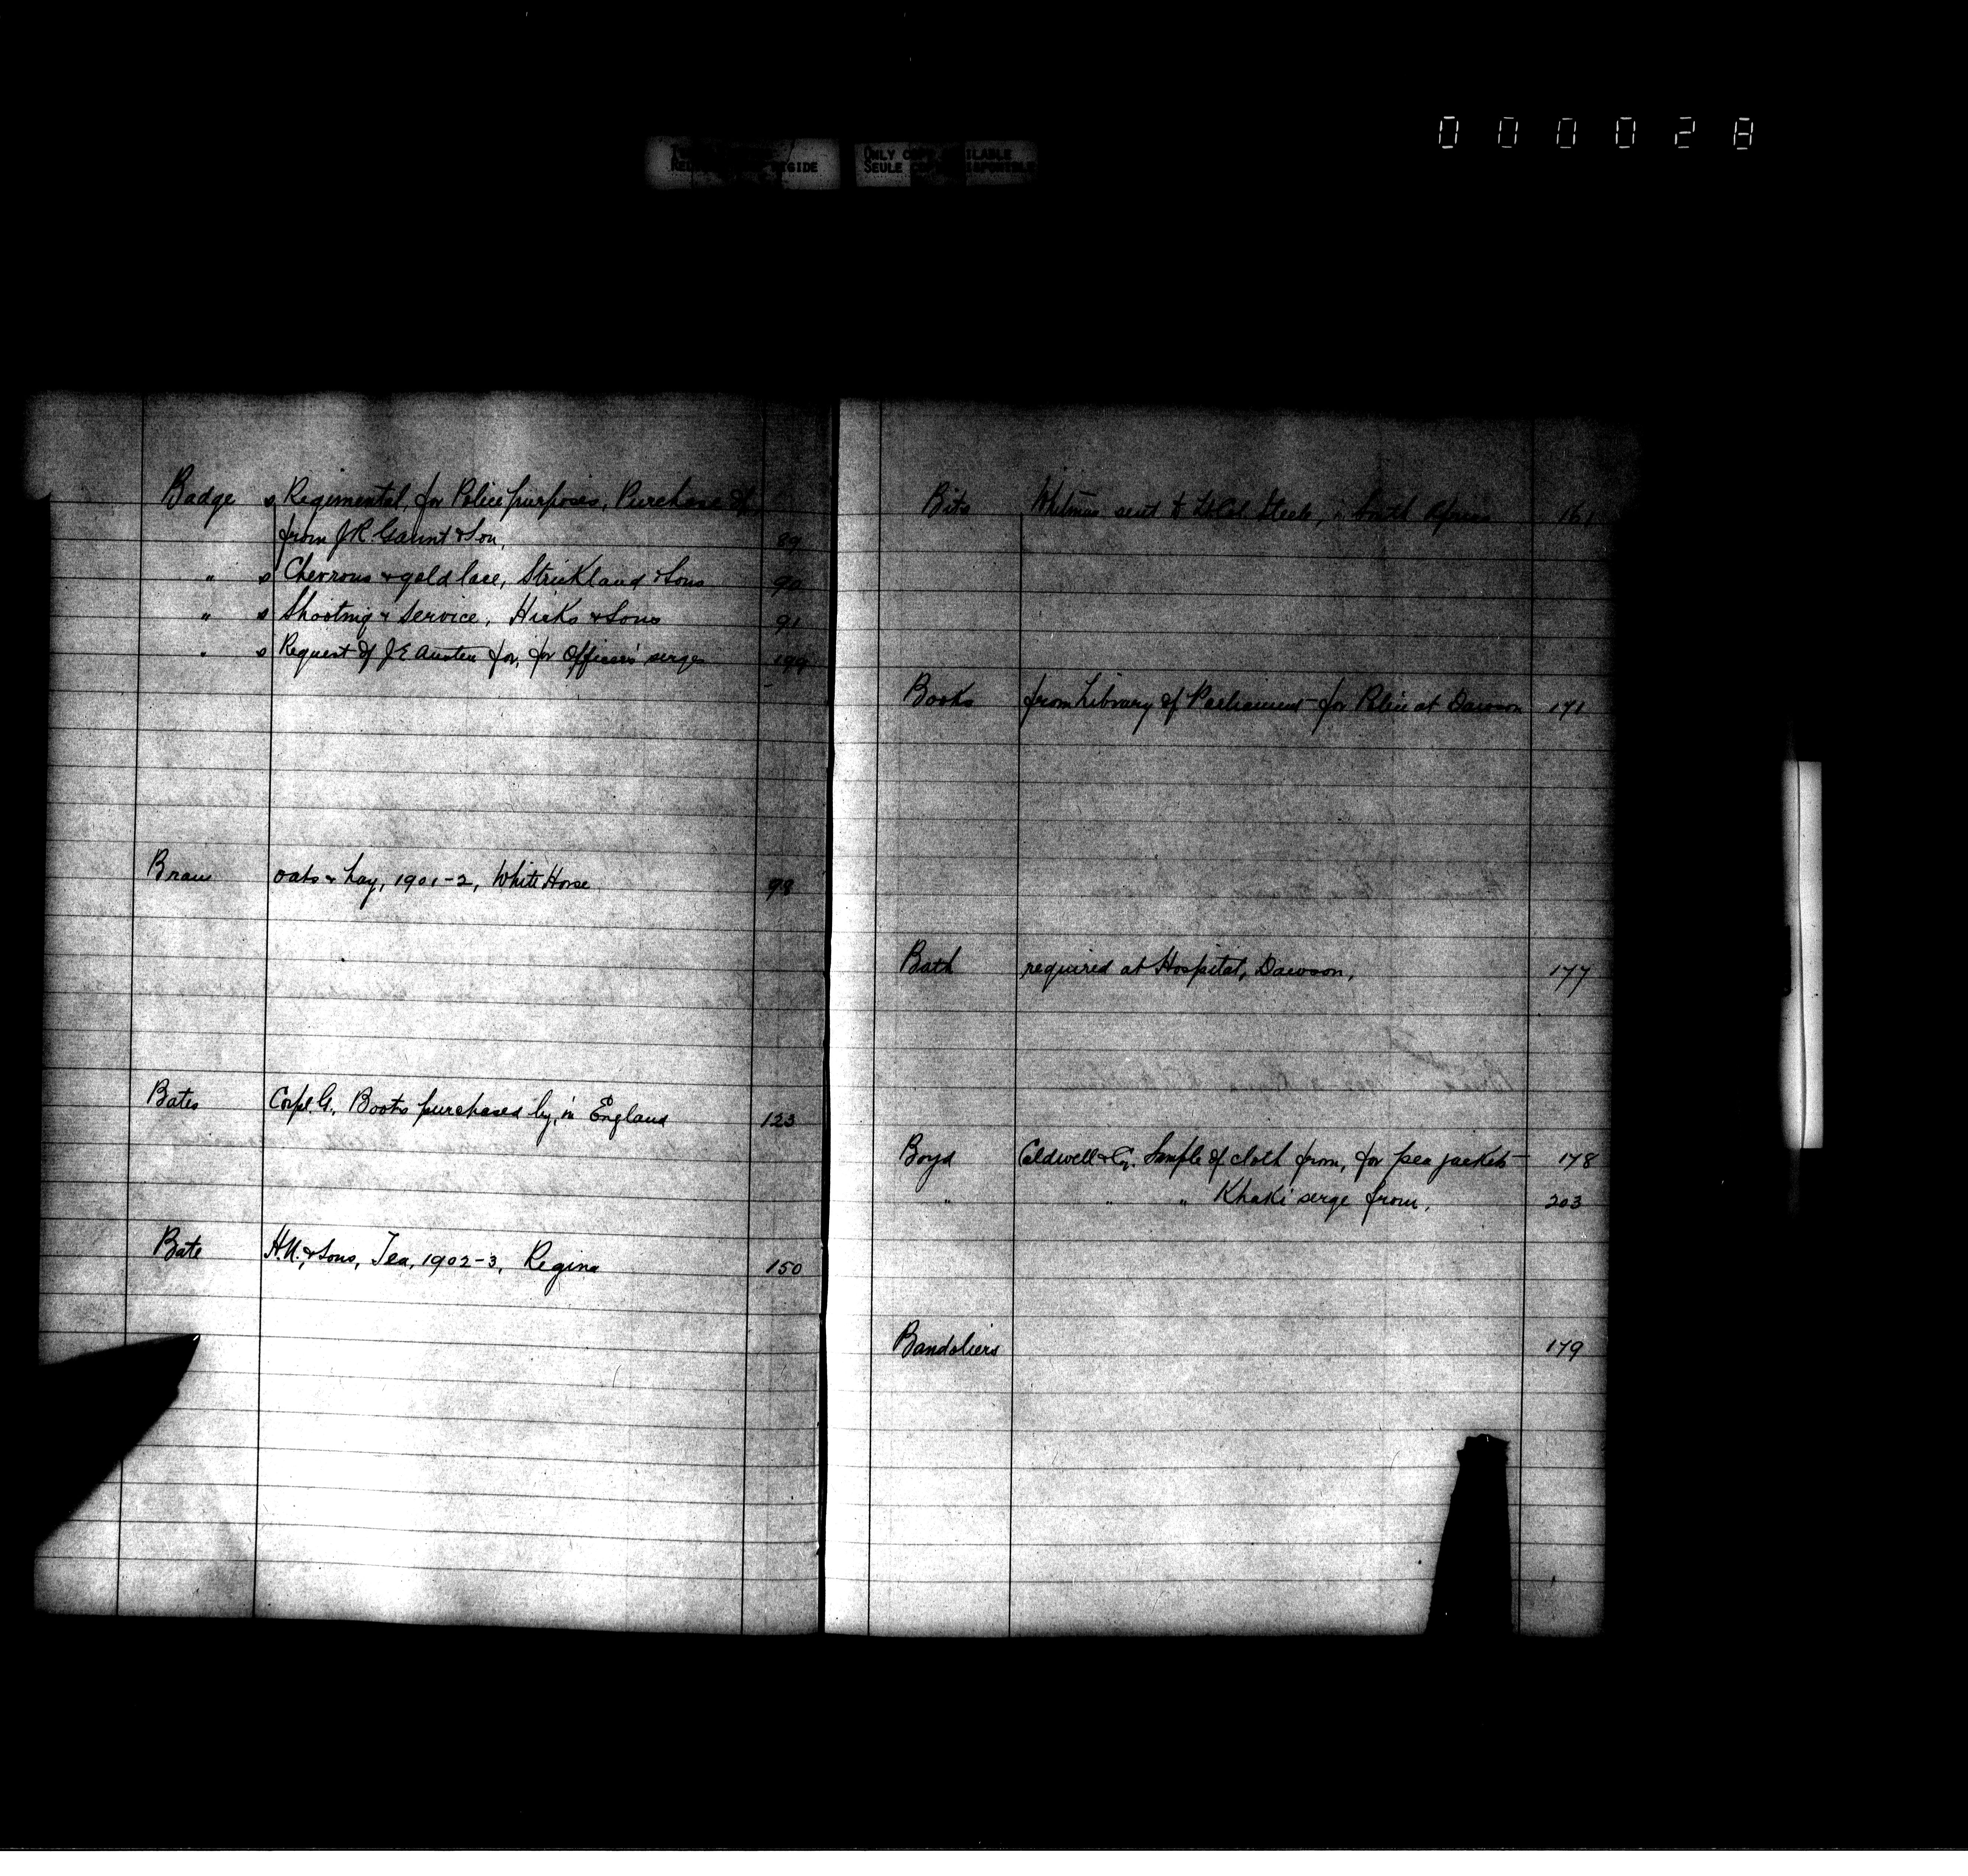 000028
ONLY COPY AVAILABLE
SEULE
Badge s Regimental, for Police purposes, Purchase of,
from J.R. Gaunt & Son, 89
" s Chevrons & gold lace, Strickland & Sons 90
" s Shooting & Service, Hicks & Sons 91
" s Request of J E Austen for, for Officer's serge 199
Bran oats & hay, 1901-2, White Horse 98
Bates Corpl. G., Boots purchased by, in England 123
Bate H.N. & Sons, Tea, 1902-3, Regina 150
Bits Whitman sent to Lt Col. Steele, South Africa 161
Books from Library of Parliament for Police at Dawson 171
Bath required at Hospital, Dawson, 177
Boyd Caldwell & Co. Sample of cloth from, for pea jackets 178
" " " Khaki serge from, 203
Bandoliers 179